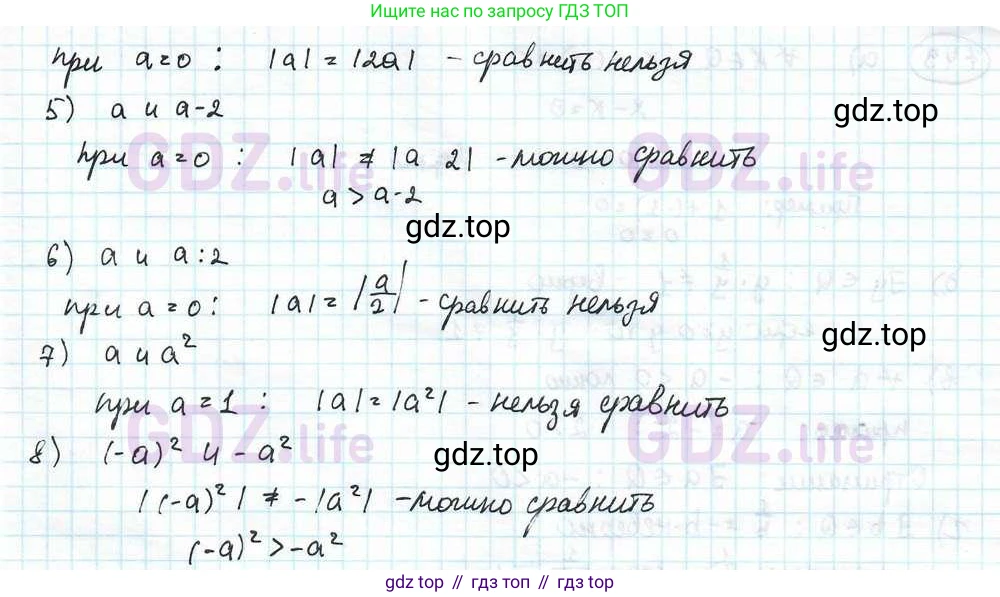 Ищите нас по запросу ГДЗ ТОП
при a=0 : |a| = |2a| - сравнить нельзя
5) a и a-2
gdz.top
при a=0 : |a| ≠ |a 2| - можно сравнить
GDZ.life GDZ.life
a > a-2
gdz.top
6) a и a:2
при a=0: |a| = |a/2| - сравнить нельзя
gdz.top
7) a и a²
при a=1 : |a| = |a²| - нельзя сравнить
GDZ.life GDZ.life
8) (-a)² и -a²
gdz.top
|(-a)²| ≠ -|a²| - можно сравнить
(-a)² > -a²
gdz.top // гдз топ // gdz.top